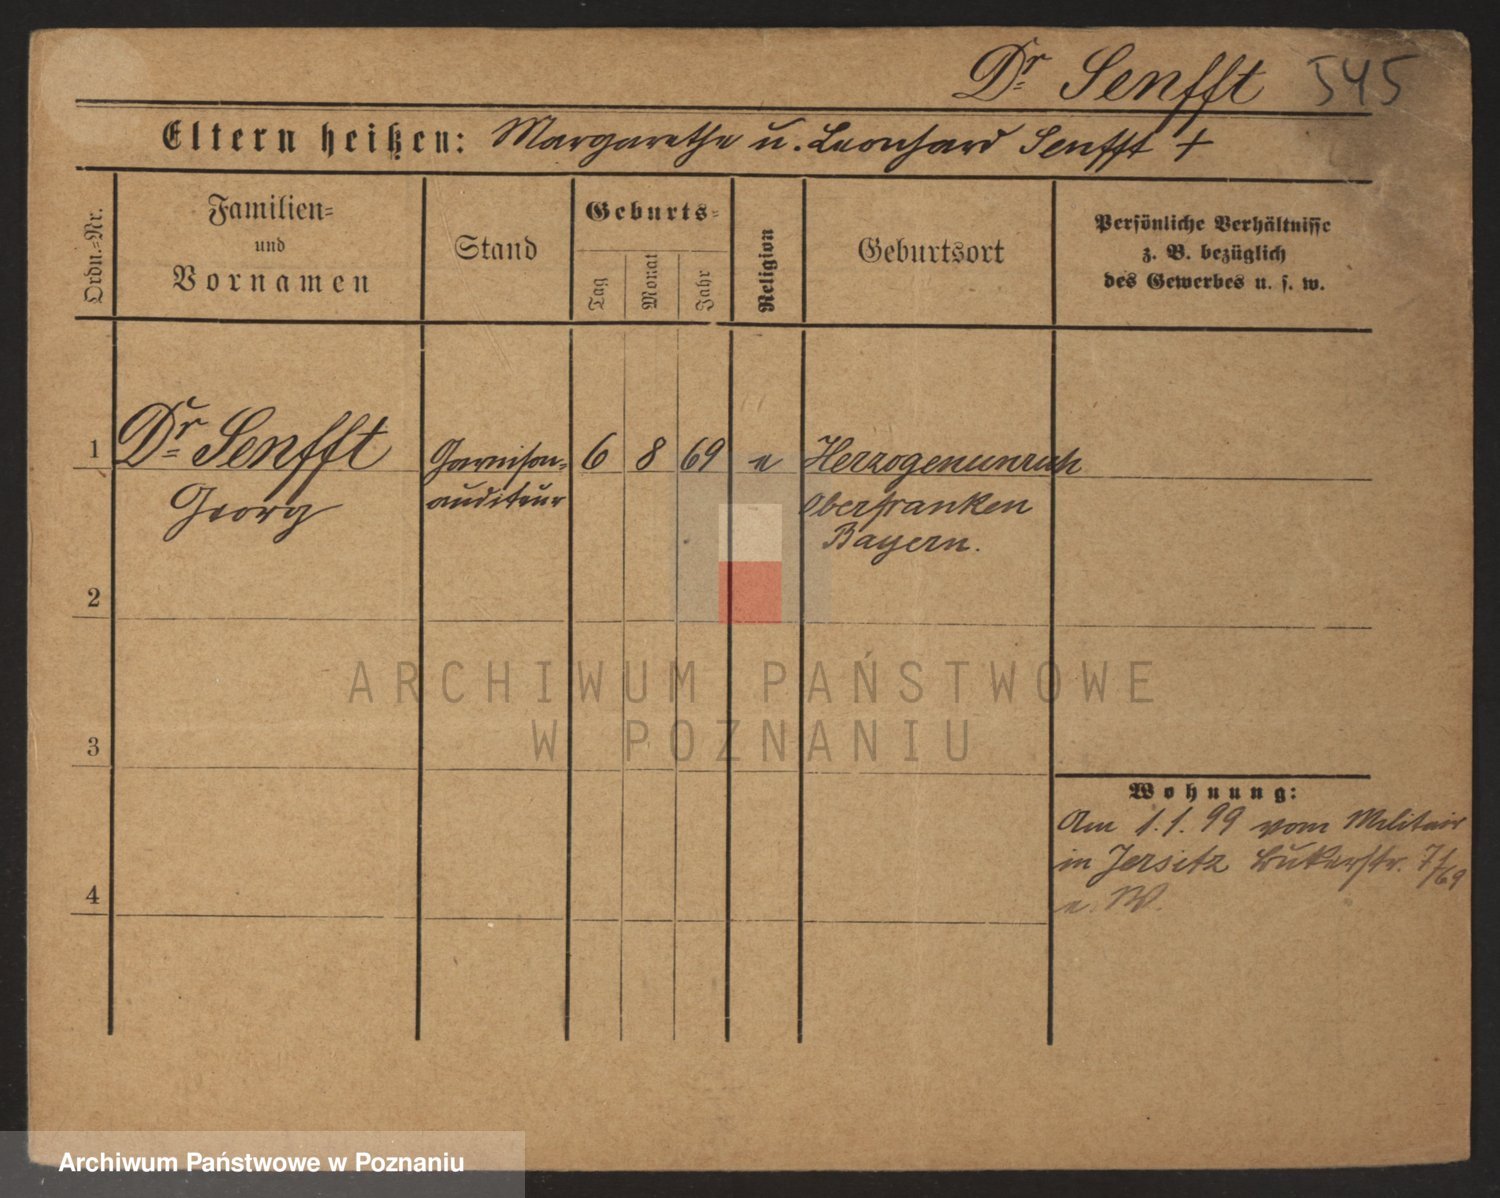 Dr Senfft 545
Eltern heißen: Margarethe u. Leonhard Senfft +
Ordn.-Nr.
Familien-
und
Vornamen
Stand
Geburts-
Tag
Monat
Jahr
Religion
Geburtsort
Persönliche Verhältnisse
z. B. bezüglich
des Gewerbes u. s. w.
1 Dr Senfft Garnison- 6 8 69 e Herzogenaurach
Georg auditeur Oberfranken
Bayern.
2
ARCHIWUM PAŃSTWOWE
W POZNANIU
3
Wohnung:
Am 1.1.99 vom Militair
in Jersitz 7/69
4
e. W.
Archiwum Państwowe w Poznaniu